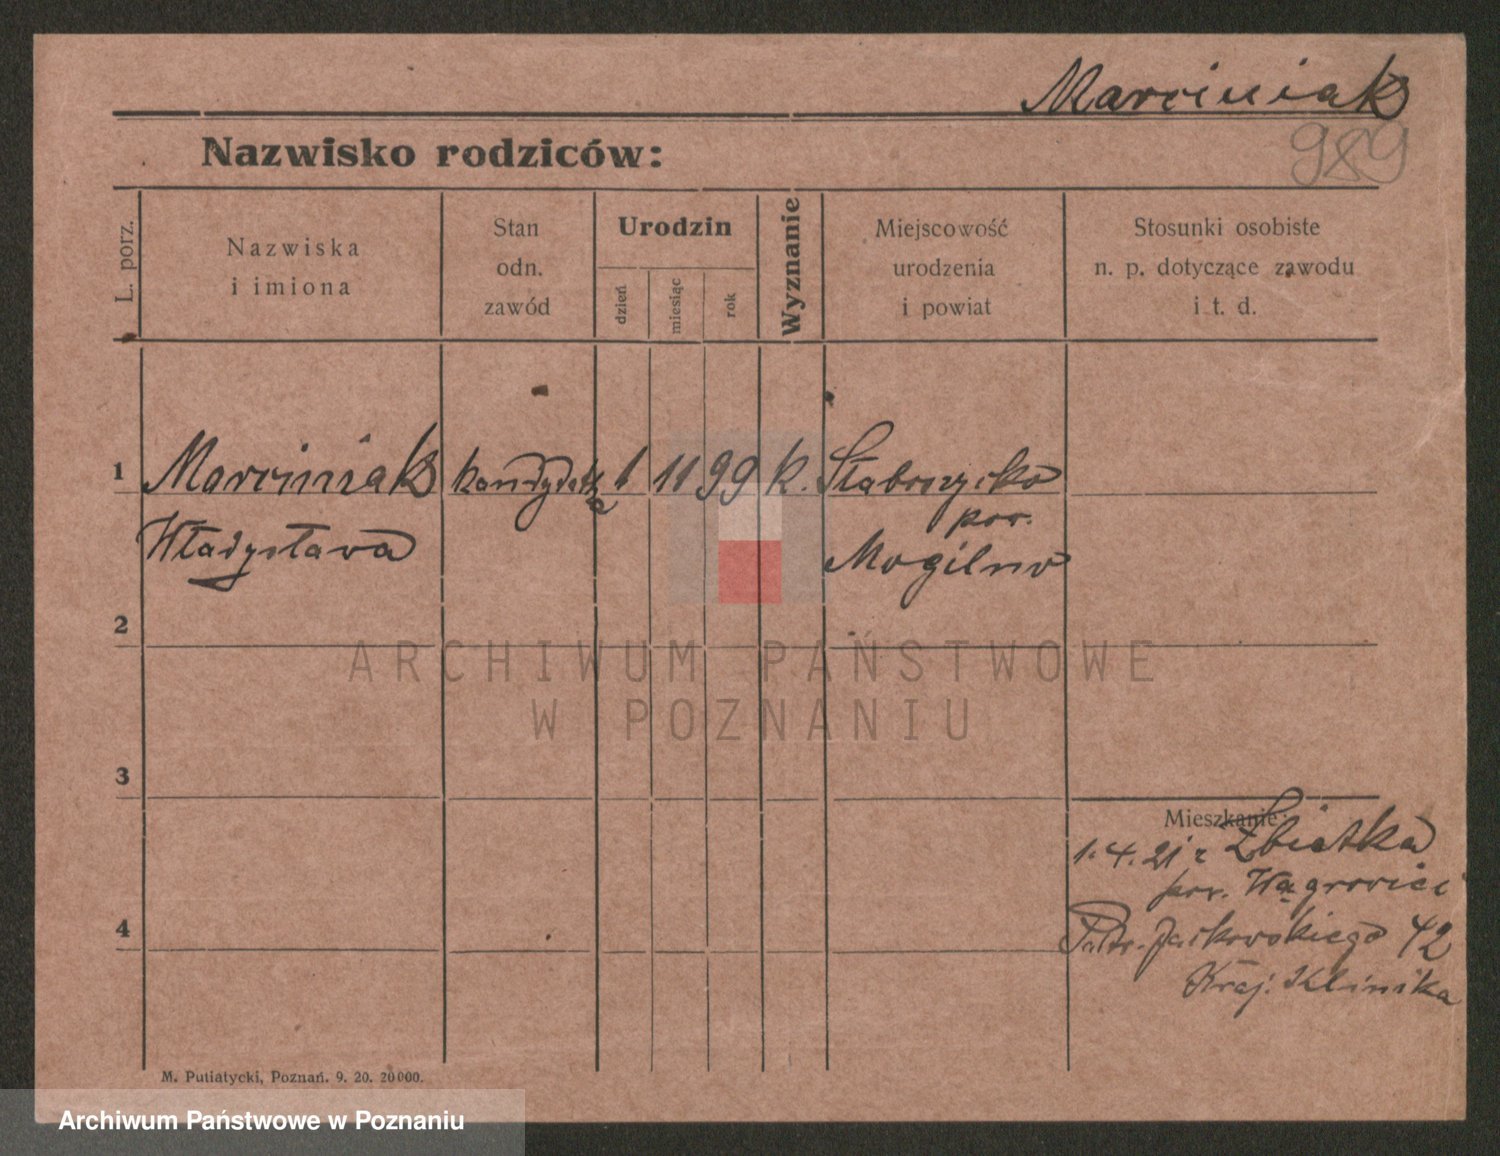 Marciniak
989
Nazwisko rodziców:
L. porz.
Nazwiska
i imiona
Stan
odn.
zawód
Urodzin
dzień
miesiąc
rok
Wyznanie
Miejscowość
urodzenia
i powiat
Stosunki osobiste
n. p. dotyczące zawodu
i t. d.
1 Marciniak kandydatka 1 11 99 k. Słaboszewko
pow.
Władysława Mogilno
2
ARCHIWUM PAŃSTWOWE
W POZNANIU
3
Mieszkanie:
1.4.21 z Zbietka
pow. Wągrowiec
4
Jackowskiego 42
Kraj. Klinika
M. Putiatycki, Poznań. 9. 20. 20000.
Archiwum Państwowe w Poznaniu